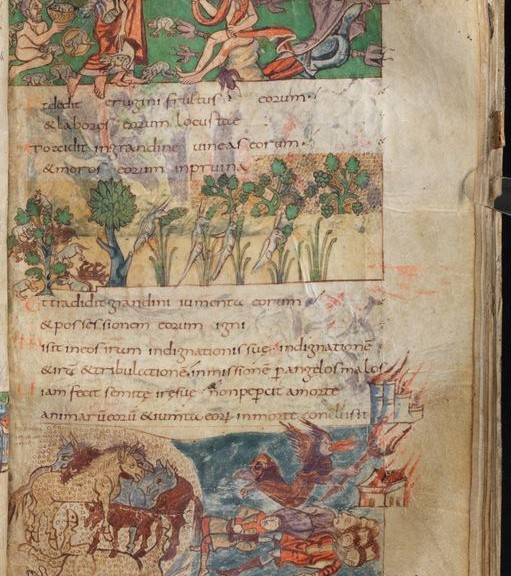 Et dedit erugini fructus eorum
& labores eorum locustae
Et occidit in grandine vineas eorum
& moros eorum in pruina
Et tradidit grandini iumenta eorum
& possessionem eorum igni
Misit in eos iram indignationis suę indignationē
& irā & tribulationē inmissionē p angelos malos
Viam fecit semitę irę suę non pepcit a morte
animarū eorū & iumta eorū in morte conclusit